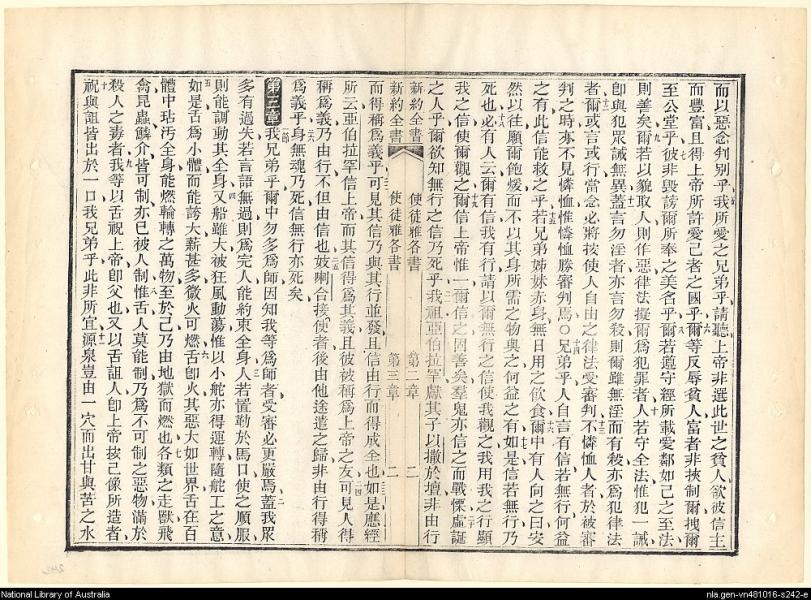 而以惡念判別乎我所愛之兄弟乎請聽上帝非選此世之貧人欲彼信主
而豐富且得上帝所許愛己者之國乎爾等反辱貧人富者非挾制爾拽爾
至公堂乎彼非毀謗爾所奉之美名乎爾若遵守經所載愛鄰如己之至法
則善矣爾若以貌取人則作惡律法擬爾爲犯罪者人若守全法惟犯一誡
卽與犯眾誡無異蓋言勿淫者亦言勿殺則爾雖無淫而有殺亦爲犯律法
者爾或言或行當念必將按使人自由之律法受審判不憐恤人者於被審
判之時亦不見憐恤惟憐恤勝審判焉○兄弟乎人自言有信若無行何益
之有此信能救之乎若兄弟姊妹赤身無日用之飲食爾中有人向之曰安
然以往願爾飽煖而不以其身所需之物與之何益之有如是信若無行乃
死也必有人云爾有信我有行請以爾無行之信使我觀之我用我之行顯
我之信使爾觀之爾信上帝惟一爾信之固善矣羣鬼亦信之而戰慄虛誕
之人乎爾欲知無行之信乃死乎我祖亞伯拉罕獻其子以撒於壇非由行
新約全書 使徒雅各書 第二章 二
新約全書 使徒雅各書 第三章 二
而得稱爲義乎可見其信乃與其行並發且信由行而得成全也如是應經
所云亞伯拉罕信上帝而其信得爲其義且彼被稱爲上帝之友可見人得
稱爲義乃由行不但由信也妓喇合接使者後由他途遣之歸非由行得稱
爲義乎身無魂乃死信無行亦死矣
第三章 我兄弟乎爾中勿多爲師因知我等爲師者受審必更嚴焉蓋我眾
多有過失若言語無過則爲完人能約束全身人若置勒於馬口使之順服
則能訓動其全身又船雖大被狂風動蕩惟以小舵亦得運轉隨舵工之意
如是舌爲小體而能誇大薪甚多微火可燃舌卽火其惡大如世界舌在百
體中玷污全身能燃輪轉之萬物至於己乃由地獄而燃也各類之走獸飛
禽昆蟲鱗介皆可制亦已被人制惟舌人莫能制乃爲不可制之惡物滿於
殺人之毒者我等以舌祝上帝卽父也又以舌詛人卽上帝按己像所造者
祝與詛皆出於一口我兄弟乎此非所宜源泉豈由一穴而出甘與苦之水
National Library of Australia
nla.gen-vn481016-s242-e